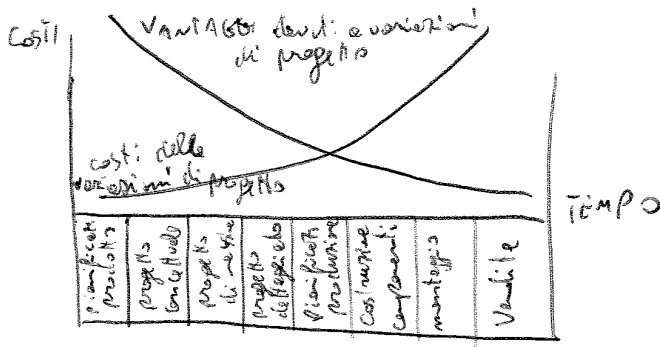 COSTI
VANTAGGI dovuti a variazioni
di progetto
costi delle
variazioni di progetto
TEMPO
Pianificaz
prodotto
progetto
concettuale
progetto
di massima
progetto
dettagliato
Pianificaz
produzione
Costruzione
componenti
montaggio
Vendite